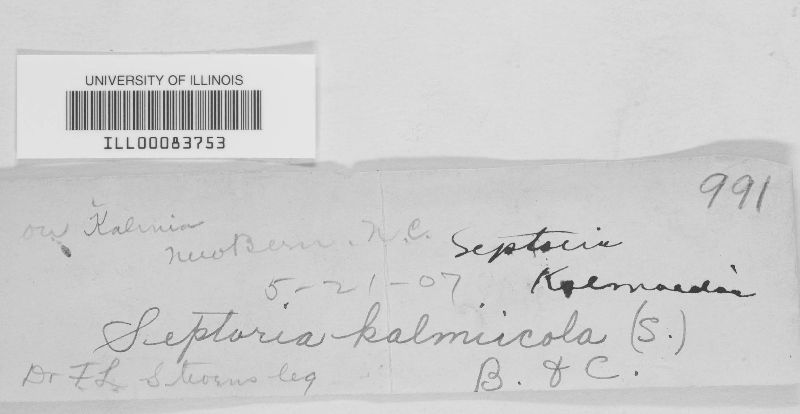 UNIVERSITY OF ILLINOIS
ILL00083753
991
on Kalmia
New Bern. N.C.
Septoria
5-21-07
Septoria kalmicola (S.)
B. & C.
Dr F.L. Stevens leg